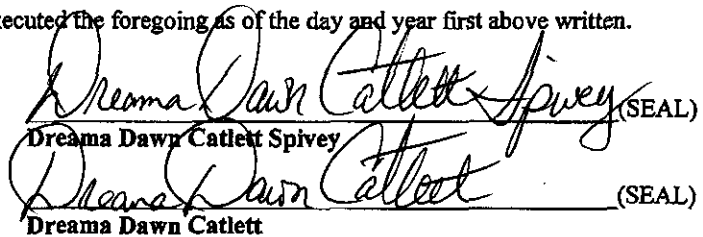 xecuted the foregoing as of the day and year first above written.
Dreama Dawn Catlett Spivey (SEAL)
Dreama Dawn Catlett Spivey
Dreama Dawn Catlett (SEAL)
Dreama Dawn Catlett